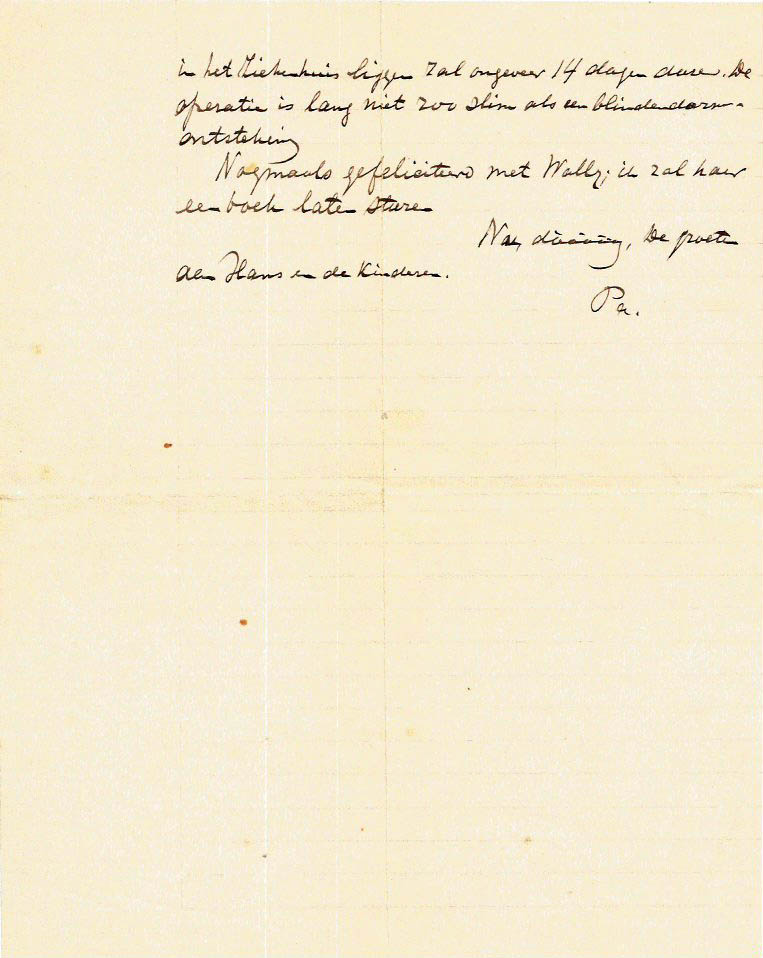 in het Ziekenhuis liggen zal ongeveer 14 dagen duren. De
operatie is lang niet zoo slim als een blindendarm-
ontsteking
Nogmaals gefeliciteerd met Wally; ik zal haar
een boek laten sturen
De groeten
aan Hans en de Kinderen.
Pa.